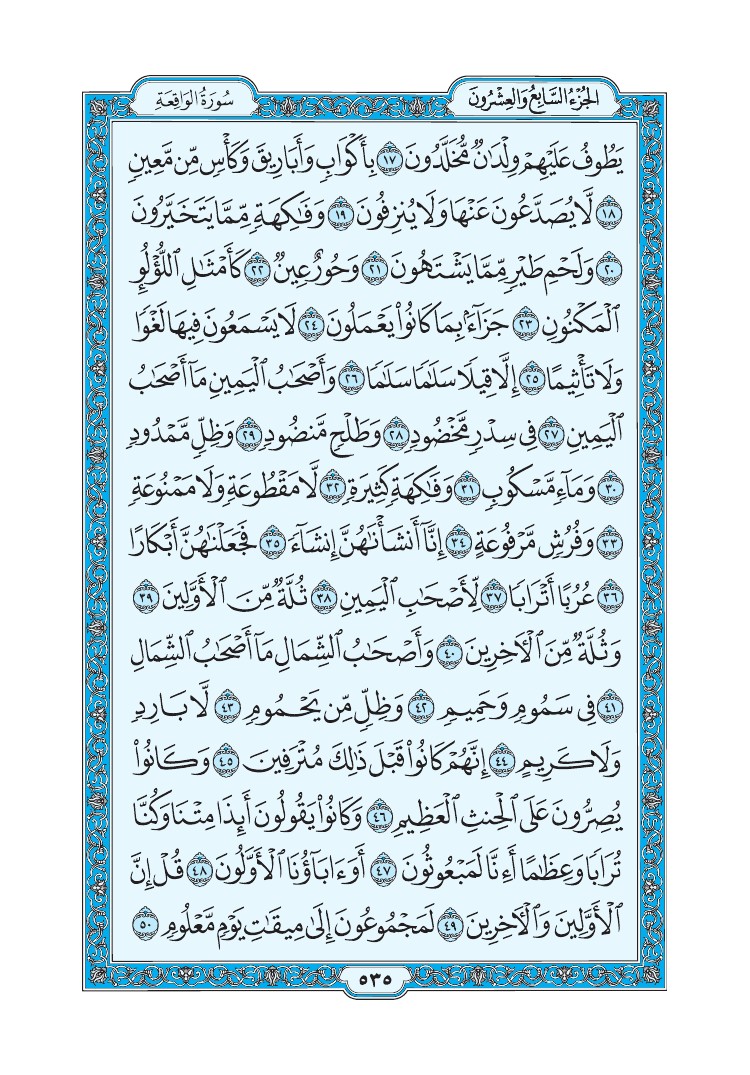 الجُزْءُ السَّابِعُ وَالعِشْرُونَ
سُورَةُ الوَاقِعَةِ
يَطُوفُ عَلَيْهِمْ وِلْدَٰنٌ مُّخَلَّدُونَ ١٧ بِأَكْوَابٍ وَأَبَارِيقَ وَكَأْسٍ مِّن مَّعِينٍ
١٨ لَّا يُصَدَّعُونَ عَنْهَا وَلَا يُنزِفُونَ ١٩ وَفَٰكِهَةٍ مِّمَّا يَتَخَيَّرُونَ
٢٠ وَلَحْمِ طَيْرٍ مِّمَّا يَشْتَهُونَ ٢١ وَحُورٌ عِينٌ ٢٢ كَأَمْثَٰلِ ٱللُّؤْلُؤِ
ٱلْمَكْنُونِ ٢٣ جَزَآءًۢ بِمَا كَانُوا۟ يَعْمَلُونَ ٢٤ لَا يَسْمَعُونَ فِيهَا لَغْوًا
وَلَا تَأْثِيمًا ٢٥ إِلَّا قِيلًا سَلَٰمًا سَلَٰمًا ٢٦ وَأَصْحَٰبُ ٱلْيَمِينِ مَآ أَصْحَٰبُ
ٱلْيَمِينِ ٢٧ فِى سِدْرٍ مَّخْضُودٍ ٢٨ وَطَلْحٍ مَّنضُودٍ ٢٩ وَظِلٍّ مَّمْدُودٍ
٣٠ وَمَآءٍ مَّسْكُوبٍ ٣١ وَفَٰكِهَةٍ كَثِيرَةٍ ٣٢ لَّا مَقْطُوعَةٍ وَلَا مَمْنُوعَةٍ
٣٣ وَفُرُشٍ مَّرْفُوعَةٍ ٣٤ إِنَّآ أَنشَأْنَٰهُنَّ إِنشَآءً ٣٥ فَجَعَلْنَٰهُنَّ أَبْكَارًا
٣٦ عُرُبًا أَتْرَابًا ٣٧ لِّأَصْحَٰبِ ٱلْيَمِينِ ٣٨ ثُلَّةٌ مِّنَ ٱلْأَوَّلِينَ ٣٩
وَثُلَّةٌ مِّنَ ٱلْـَٔاخِرِينَ ٤٠ وَأَصْحَٰبُ ٱلشِّمَالِ مَآ أَصْحَٰبُ ٱلشِّمَالِ
٤١ فِى سَمُومٍ وَحَمِيمٍ ٤٢ وَظِلٍّ مِّن يَحْمُومٍ ٤٣ لَّا بَارِدٍ
وَلَا كَرِيمٍ ٤٤ إِنَّهُمْ كَانُوا۟ قَبْلَ ذَٰلِكَ مُتْرَفِينَ ٤٥ وَكَانُوا۟
يُصِرُّونَ عَلَى ٱلْحِنثِ ٱلْعَظِيمِ ٤٦ وَكَانُوا۟ يَقُولُونَ أَئِذَا مِتْنَا وَكُنَّا
تُرَابًا وَعِظَٰمًا أَءِنَّا لَمَبْعُوثُونَ ٤٧ أَوَءَابَآؤُنَا ٱلْأَوَّلُونَ ٤٨ قُلْ إِنَّ
ٱلْأَوَّلِينَ وَٱلْـَٔاخِرِينَ ٤٩ لَمَجْمُوعُونَ إِلَىٰ مِيقَٰتِ يَوْمٍ مَّعْلُومٍ ٥٠
٥٣٥